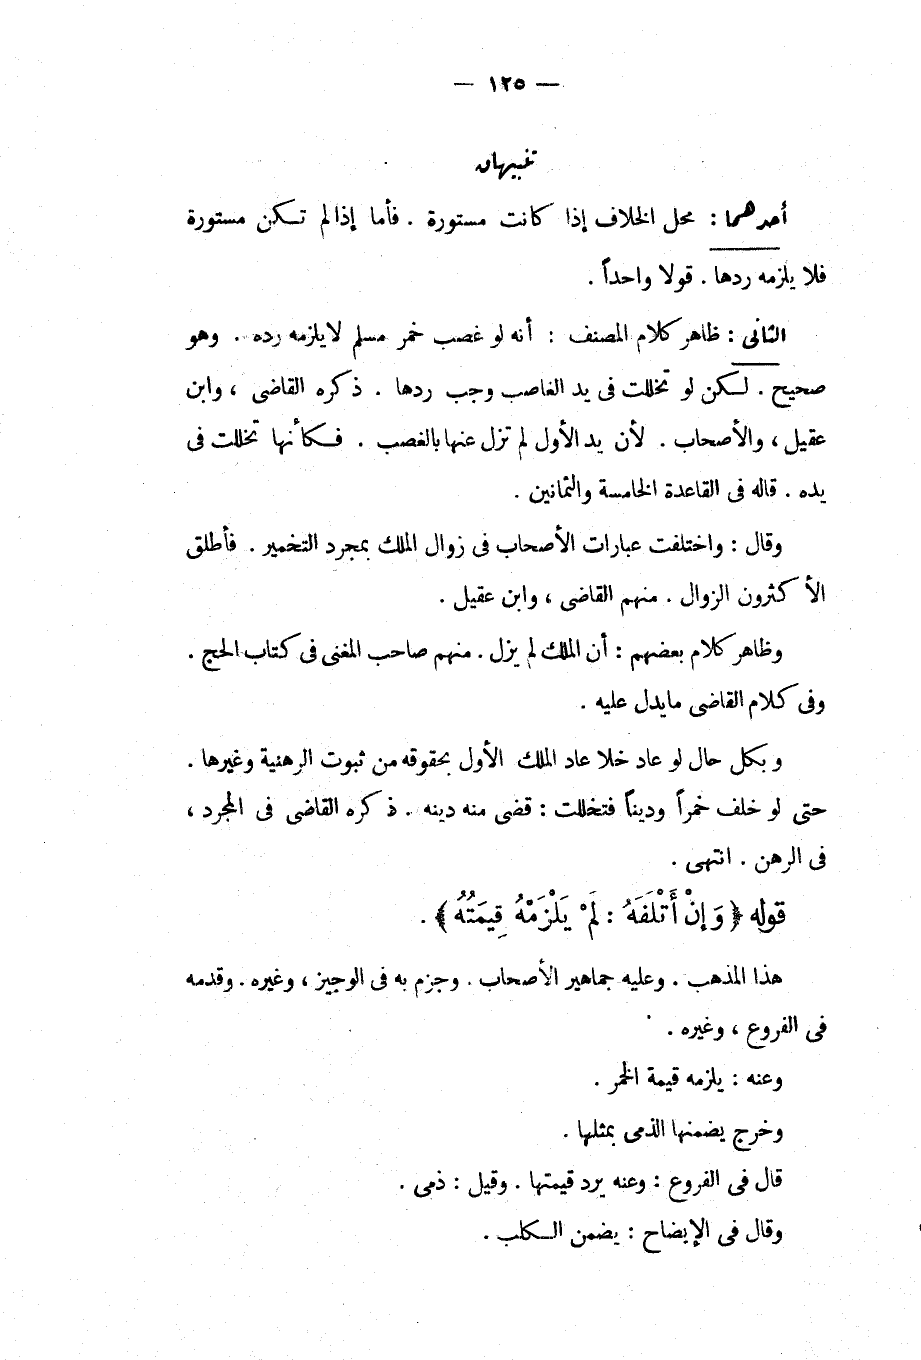 — ١٢٥ —
تنبيهان
أحدهما : محل الخلاف إذا كانت مستورة . فأما إذا لم تكن مستورة
فلا يلزمه ردها . قولا واحداً .
الثانى : ظاهر كلام المصنف : أنه لو غصب خمر مسلم لا يلزمه رده . وهو
صحيح . لكن لو تخللت فى يد الغاصب وجب ردها . ذكره القاضى ، وابن
عقيل ، والأصحاب . لأن يد الأول لم تزل عنها بالغصب . فكأنها تخللت فى
يده . قاله فى القاعدة الخامسة والثمانين .
وقال : واختلفت عبارات الأصحاب فى زوال الملك بمجرد التخمير . فأطلق
الأكثرون الزوال . منهم القاضى ، وابن عقيل .
وظاهر كلام بعضهم : أن الملك لم يزل . منهم صاحب المغنى فى كتاب الحج .
وفى كلام القاضى مايدل عليه .
وبكل حال لو عاد خلا عاد الملك الأول بحقوقه من ثبوت الرهنية وغيرها .
حتى لو خلف خمراً وديناً فتخللت : قضى منه دينه . ذكره القاضى فى المجرد ،
فى الرهن . انتهى .
قوله ﴿ وَإِنْ أَتْلَفَهُ : لَمْ يَلْزَمْهُ قِيمَتُهُ ﴾ .
هذا المذهب . وعليه جماهير الأصحاب . وجزم به فى الوجيز ، وغيره . وقدمه
فى الفروع ، وغيره .
وعنه : يلزمه قيمة الخمر .
وخرج يضمنها الذمى بمثلها .
قال فى الفروع : وعنه يرد قيمتها . وقيل : ذمى .
وقال فى الإيضاح : يضمن الكلب .